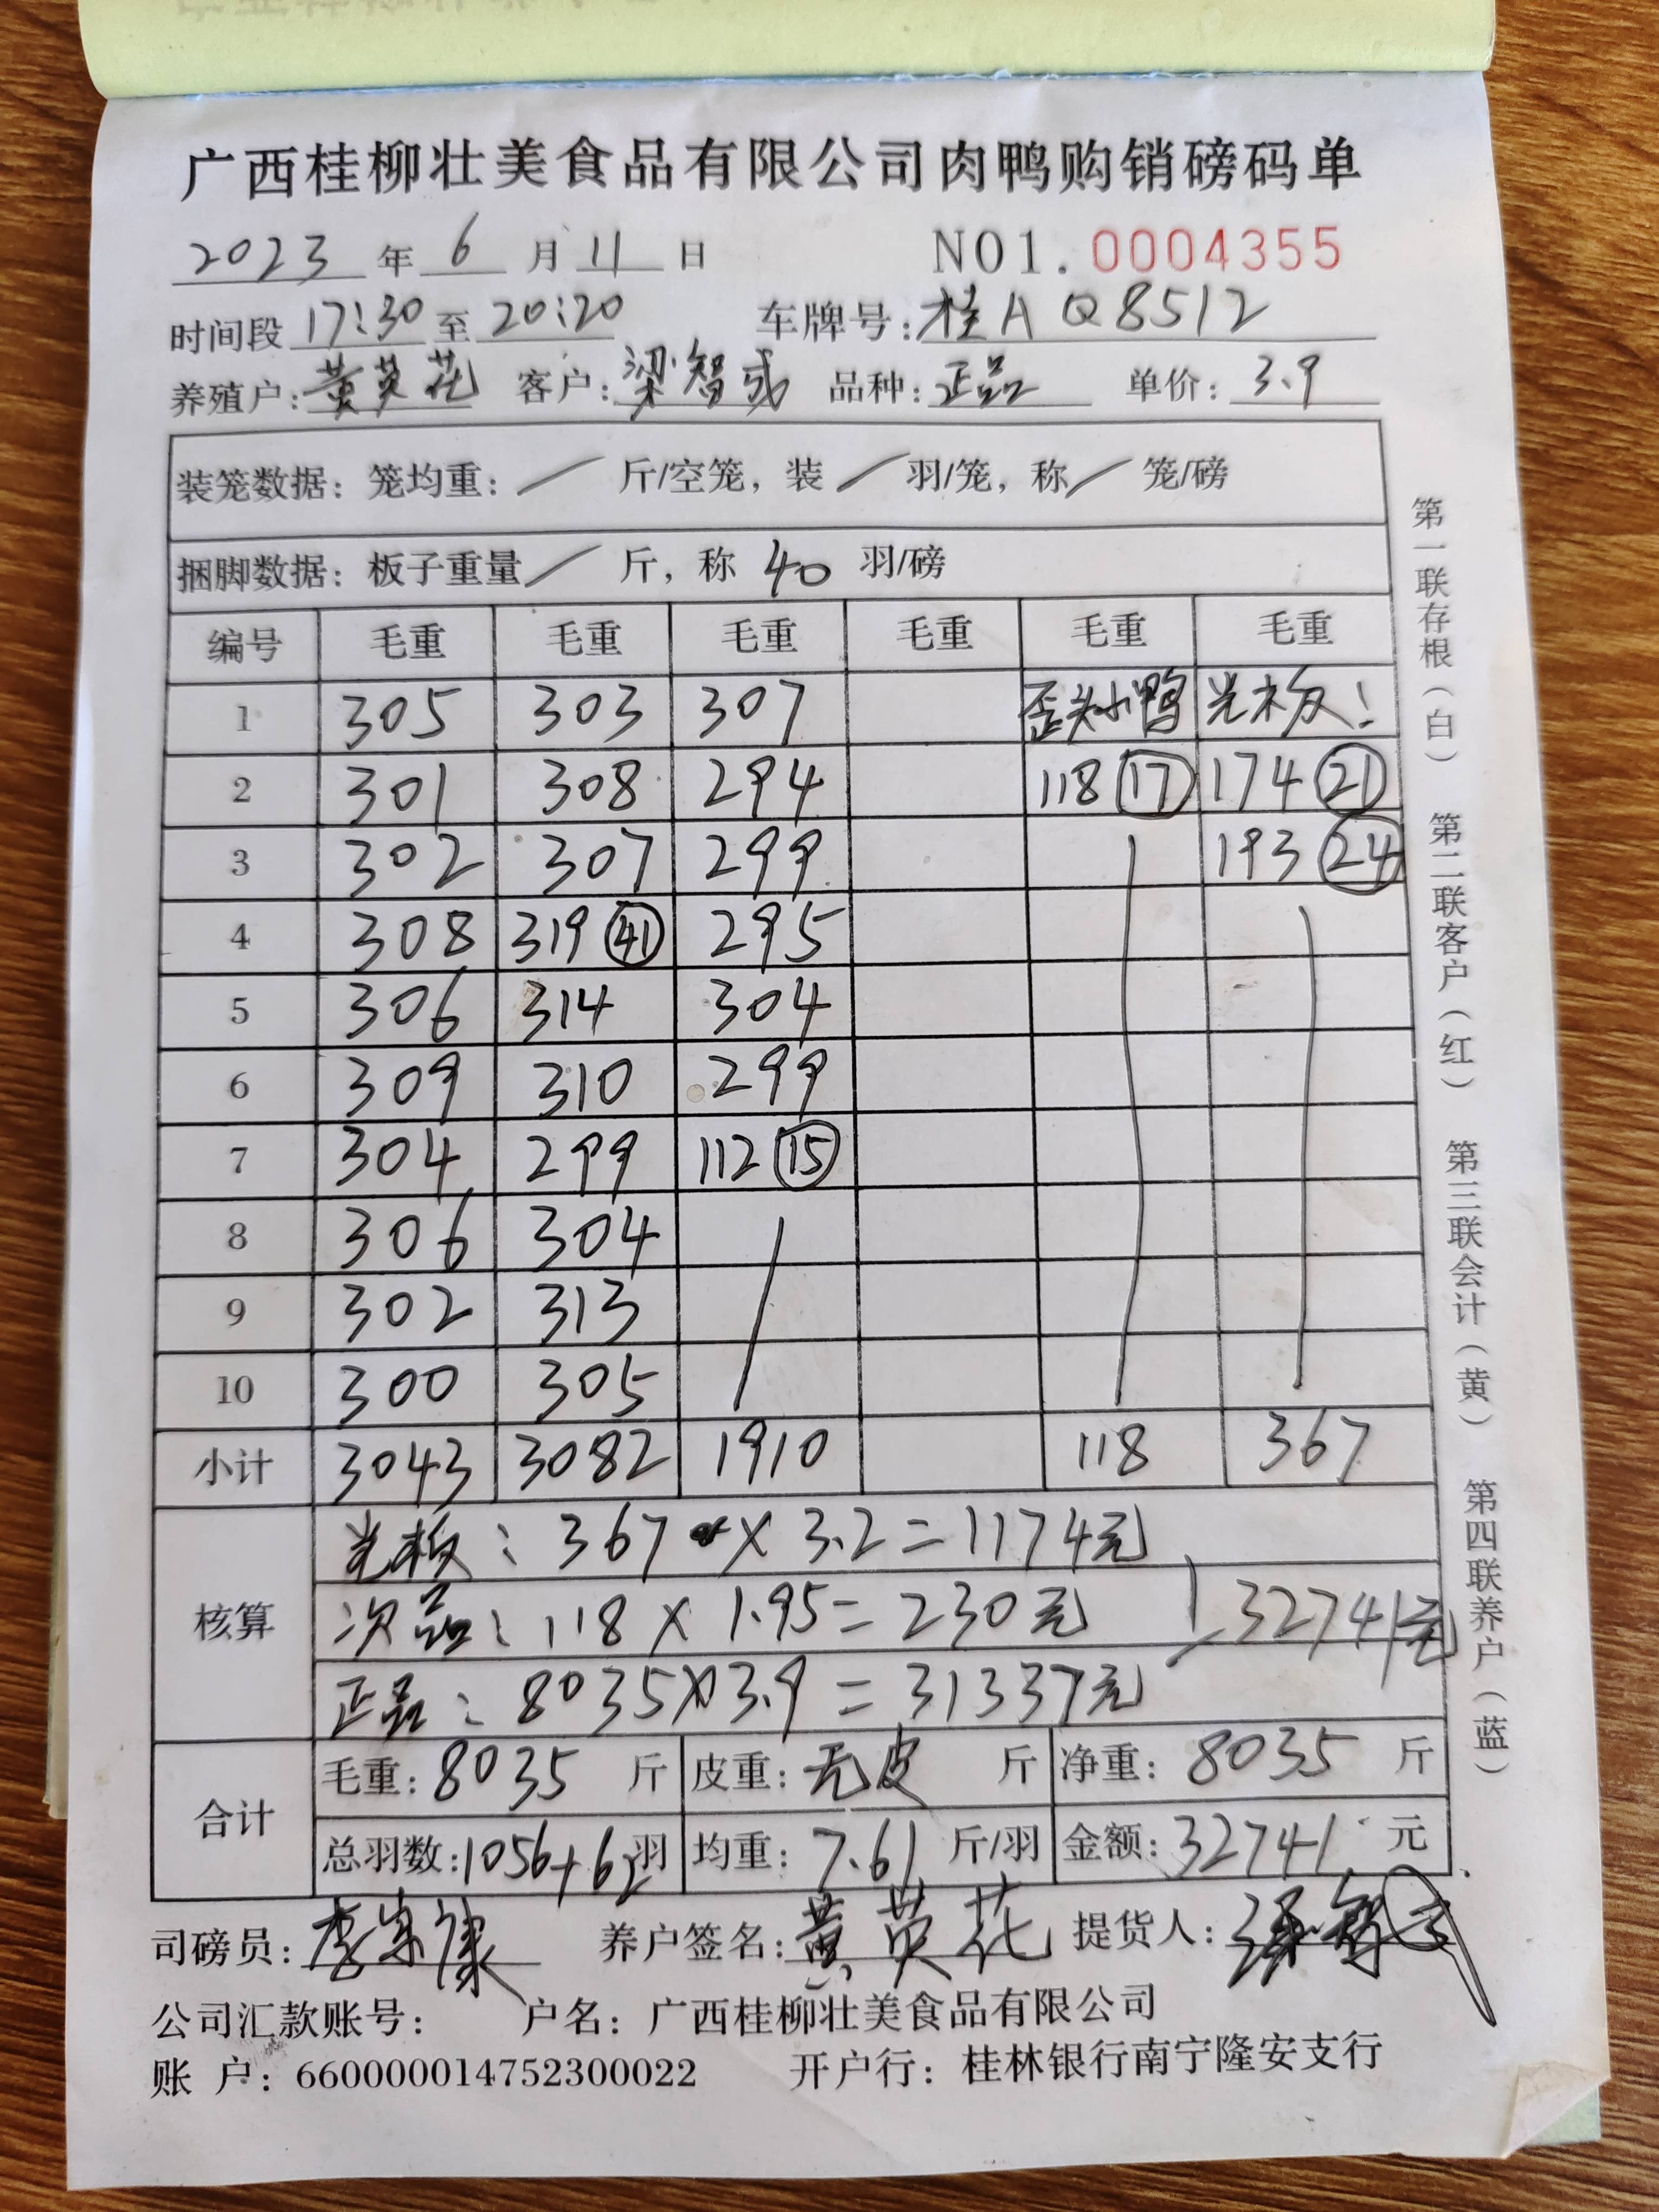 广西桂柳壮美食品有限公司肉鸭购销磅码单
2023 年 6 月 11 日 NO1. 0004355
时间段 17:30 至 20:20 车牌号: 桂A Q8512
养殖户: 黄英花 客户: 梁智 品种: 正品 单价: 3.9
装笼数据: 笼均重: / 斤/空笼, 装 / 羽/笼, 称 / 笼/磅
捆脚数据: 板子重量 / 斤, 称 40 羽/磅
编号 毛重 毛重 毛重 毛重 毛重 毛重
1 305 303 307 歪头小鸭 光板!
2 301 308 294 118 ⑰ 174 ㉑
3 302 307 299 193 ㉔
4 308 319 ㊶ 295
5 306 314 304
6 309 310 299
7 304 299 112 ⑮
8 306 304 /
9 302 313
10 300 305
小计 3043 3082 1910 118 367
核算
光板: 367 × 3.2 = 1174元
次品: 118 × 1.95 = 230元 32741元
正品: 8035 × 3.9 = 31337元
合计
毛重: 8035 斤 皮重: 无皮 斤 净重: 8035 斤
总羽数: 1056+62 羽 均重: 7.61 斤/羽 金额: 32741 元
司磅员: 李 康 养户签名: 黄英花 提货人:
公司汇款账号: 户名: 广西桂柳壮美食品有限公司
账 户: 660000014752300022 开户行: 桂林银行南宁隆安支行
第一联存根(白) 第二联客户(红) 第三联会计(黄) 第四联养户(蓝)